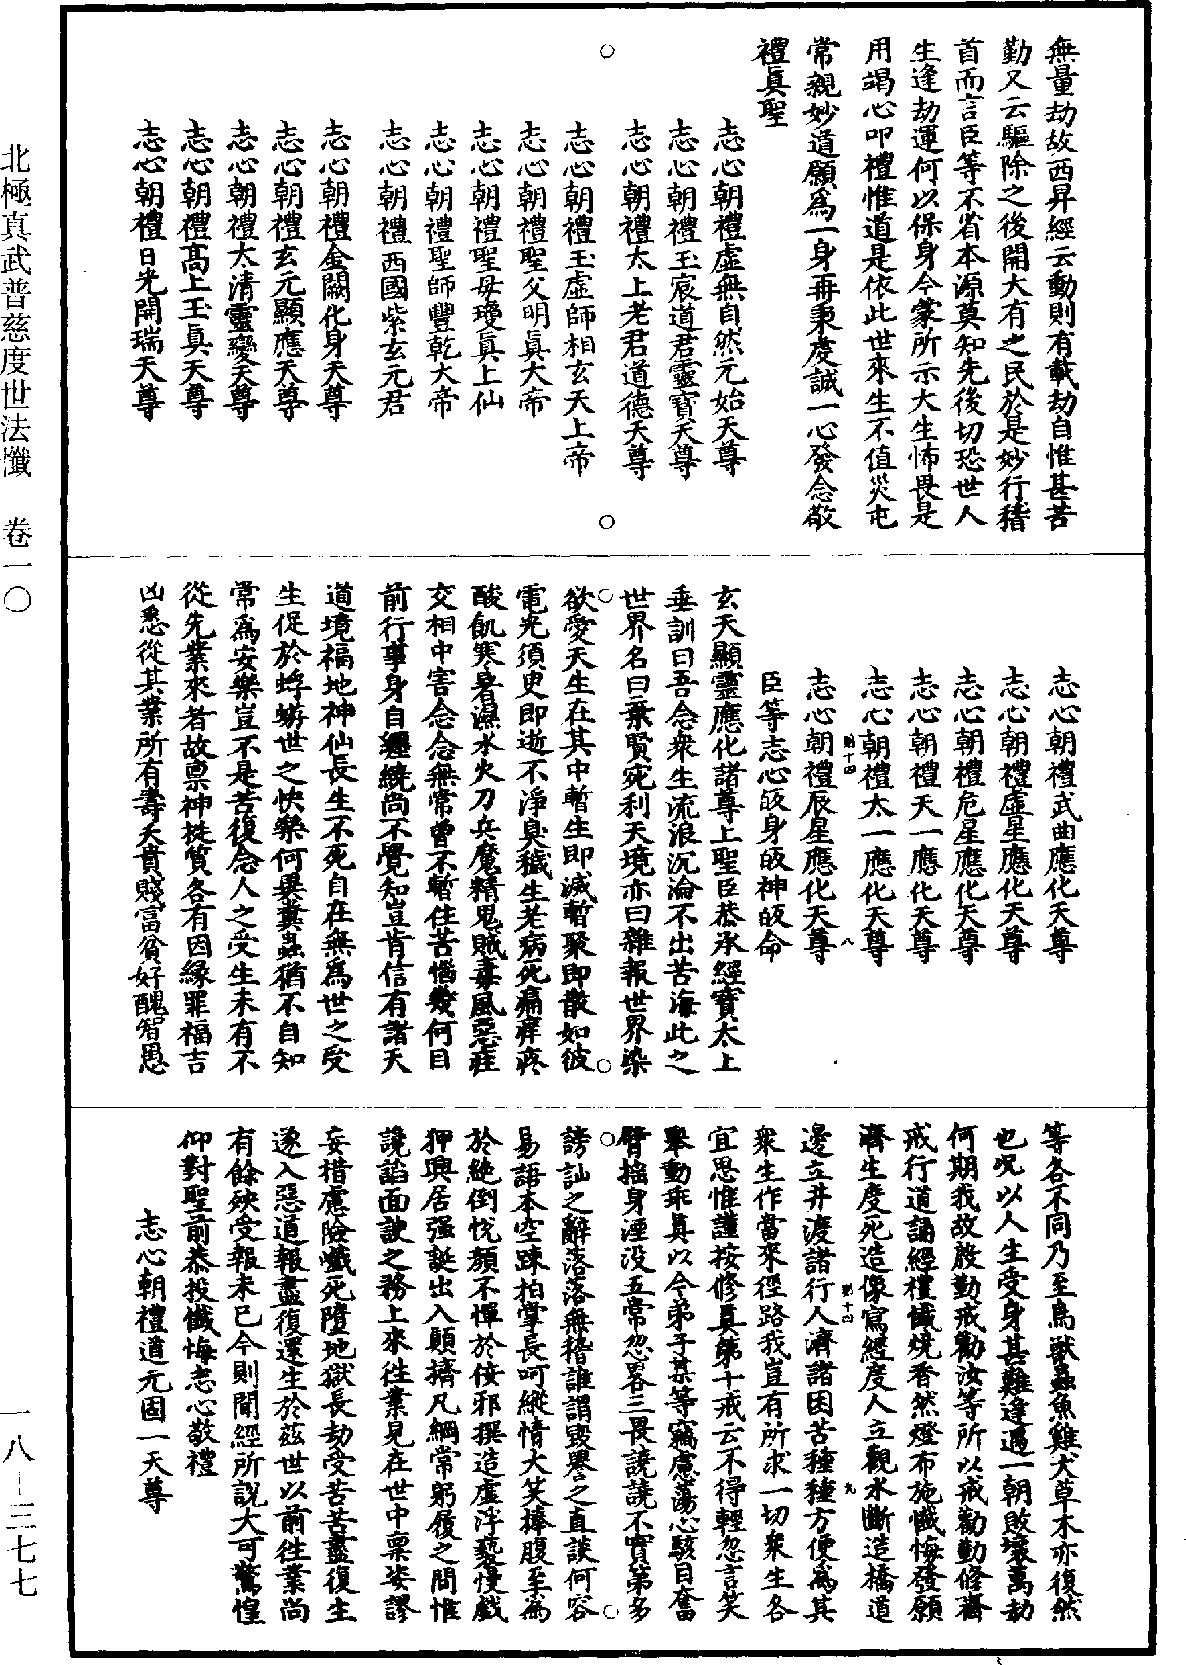 無量劫故西昇經云動則有載劫自惟甚苦
勤又云驅除之後開大有之民於是妙行稽
首而言臣等不省本源莫知先後切恐世人
生逢劫運何以保身今蒙所示大生怖畏是
用竭心叩禮惟道是依此世來生不值災屯
常親妙道願爲一身再秉虔誠一心發念敬
禮眞聖
志心朝禮虛無自然元始天尊
志心朝禮玉宸道君靈寶天尊
志心朝禮太上老君道德天尊
志心朝禮玉虛師相玄天上帝
志心朝禮聖父明眞大帝
志心朝禮聖母瓊眞上仙
志心朝禮聖師豐乾大帝
志心朝禮西國紫玄元君
志心朝禮金闕化身天尊
志心朝禮玄元顯應天尊
志心朝禮太清靈變天尊
志心朝禮高上玉眞天尊
志心朝禮日光開瑞天尊
志心朝禮武曲應化天尊
志心朝禮虛星應化天尊
志心朝禮危星應化天尊
志心朝禮天一應化天尊
志心朝禮太一應化天尊
志心朝禮辰星應化天尊
臣等志心皈身皈神皈命
玄天顯靈應化諸尊上聖臣恭承經寶太上
垂訓曰吾念衆生流浪沉淪不出苦海此之
世界名曰棄賢宛利天境亦曰雜報世界染
欲愛天生在其中暫生即滅暫聚即散如彼
電光須臾即逝不淨臭穢生老病死痛痒疼
酸飢寒暑濕水火刀兵魔精鬼賊毒風惡疰
交相中害念念無常曾不暫住苦惱幾何目
前行事身自纏繞尚不覺知豈肯信有諸天
道境福地神仙長生不死自在無爲世之受
生促於蜉蝣世之快樂何異糞蟲猶不自知
常爲安樂豈不是苦復念人之受生未有不
從先業來者故稟神挺質各有因緣罪福吉
凶悉從其業所有壽夭貴賤富貧好醜智愚
等各不同乃至鳥獸蟲魚雞犬草木亦復然
也况以人生受身甚難逢遇一朝敗壞萬劫
何期我故殷勤戒勸汝等所以戒勸勤修齋
戒行道誦經禮懺燒香然燈布施懺悔發願
濟生度死造像寫經度人立觀水斷造橋道
邊立井渡諸行人濟諸困苦種種方便爲其
衆生作當來徑路我豈有所求一切衆生各
宜思惟謹按修眞第十戒云不得輕忽言笑
舉動乖眞以今弟子某等竊慮蕩心駭目奮
臂搖身湮没五常忽畧三畏譊譊不實第多
謗訕之辭落落無稽誰謂毀譽之直談何容
易語本空踈拍掌長呵縱情大笑捧腹至爲
於絶倒悅顏不憚於佞邪撰造虛浮褻慢戲
狎興居强誕出入顛擠凡綱常躬履之間惟
讒諂面諛之務上來往業見在世中稟姿謬
妄措慮險巇死墮地獄長劫受苦苦盡復生
遂入惡道報盡復還生於茲世以前往業尚
有餘殃受報未已今則聞經所説大可驚惶
仰對聖前恭投懺悔志心敬禮
志心朝禮道元固一天尊
北極真武普慈度世法懺　卷一〇
一八－三七七